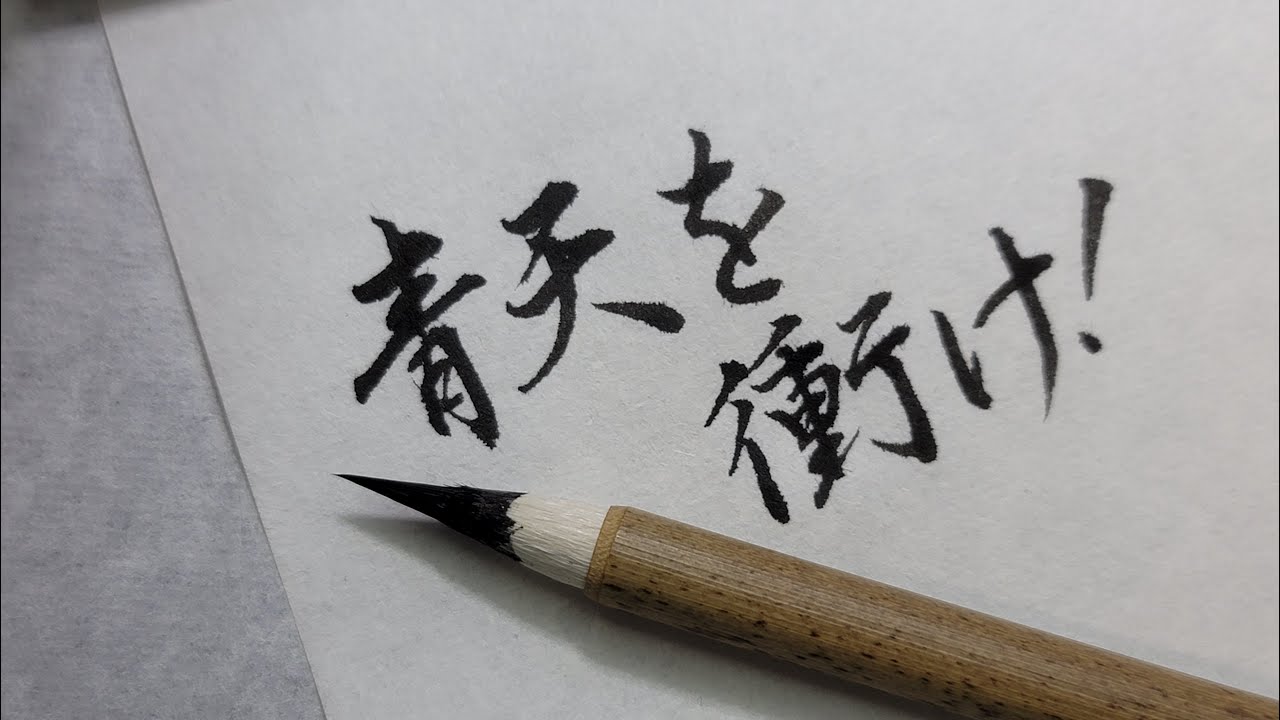 青天を
衝け!